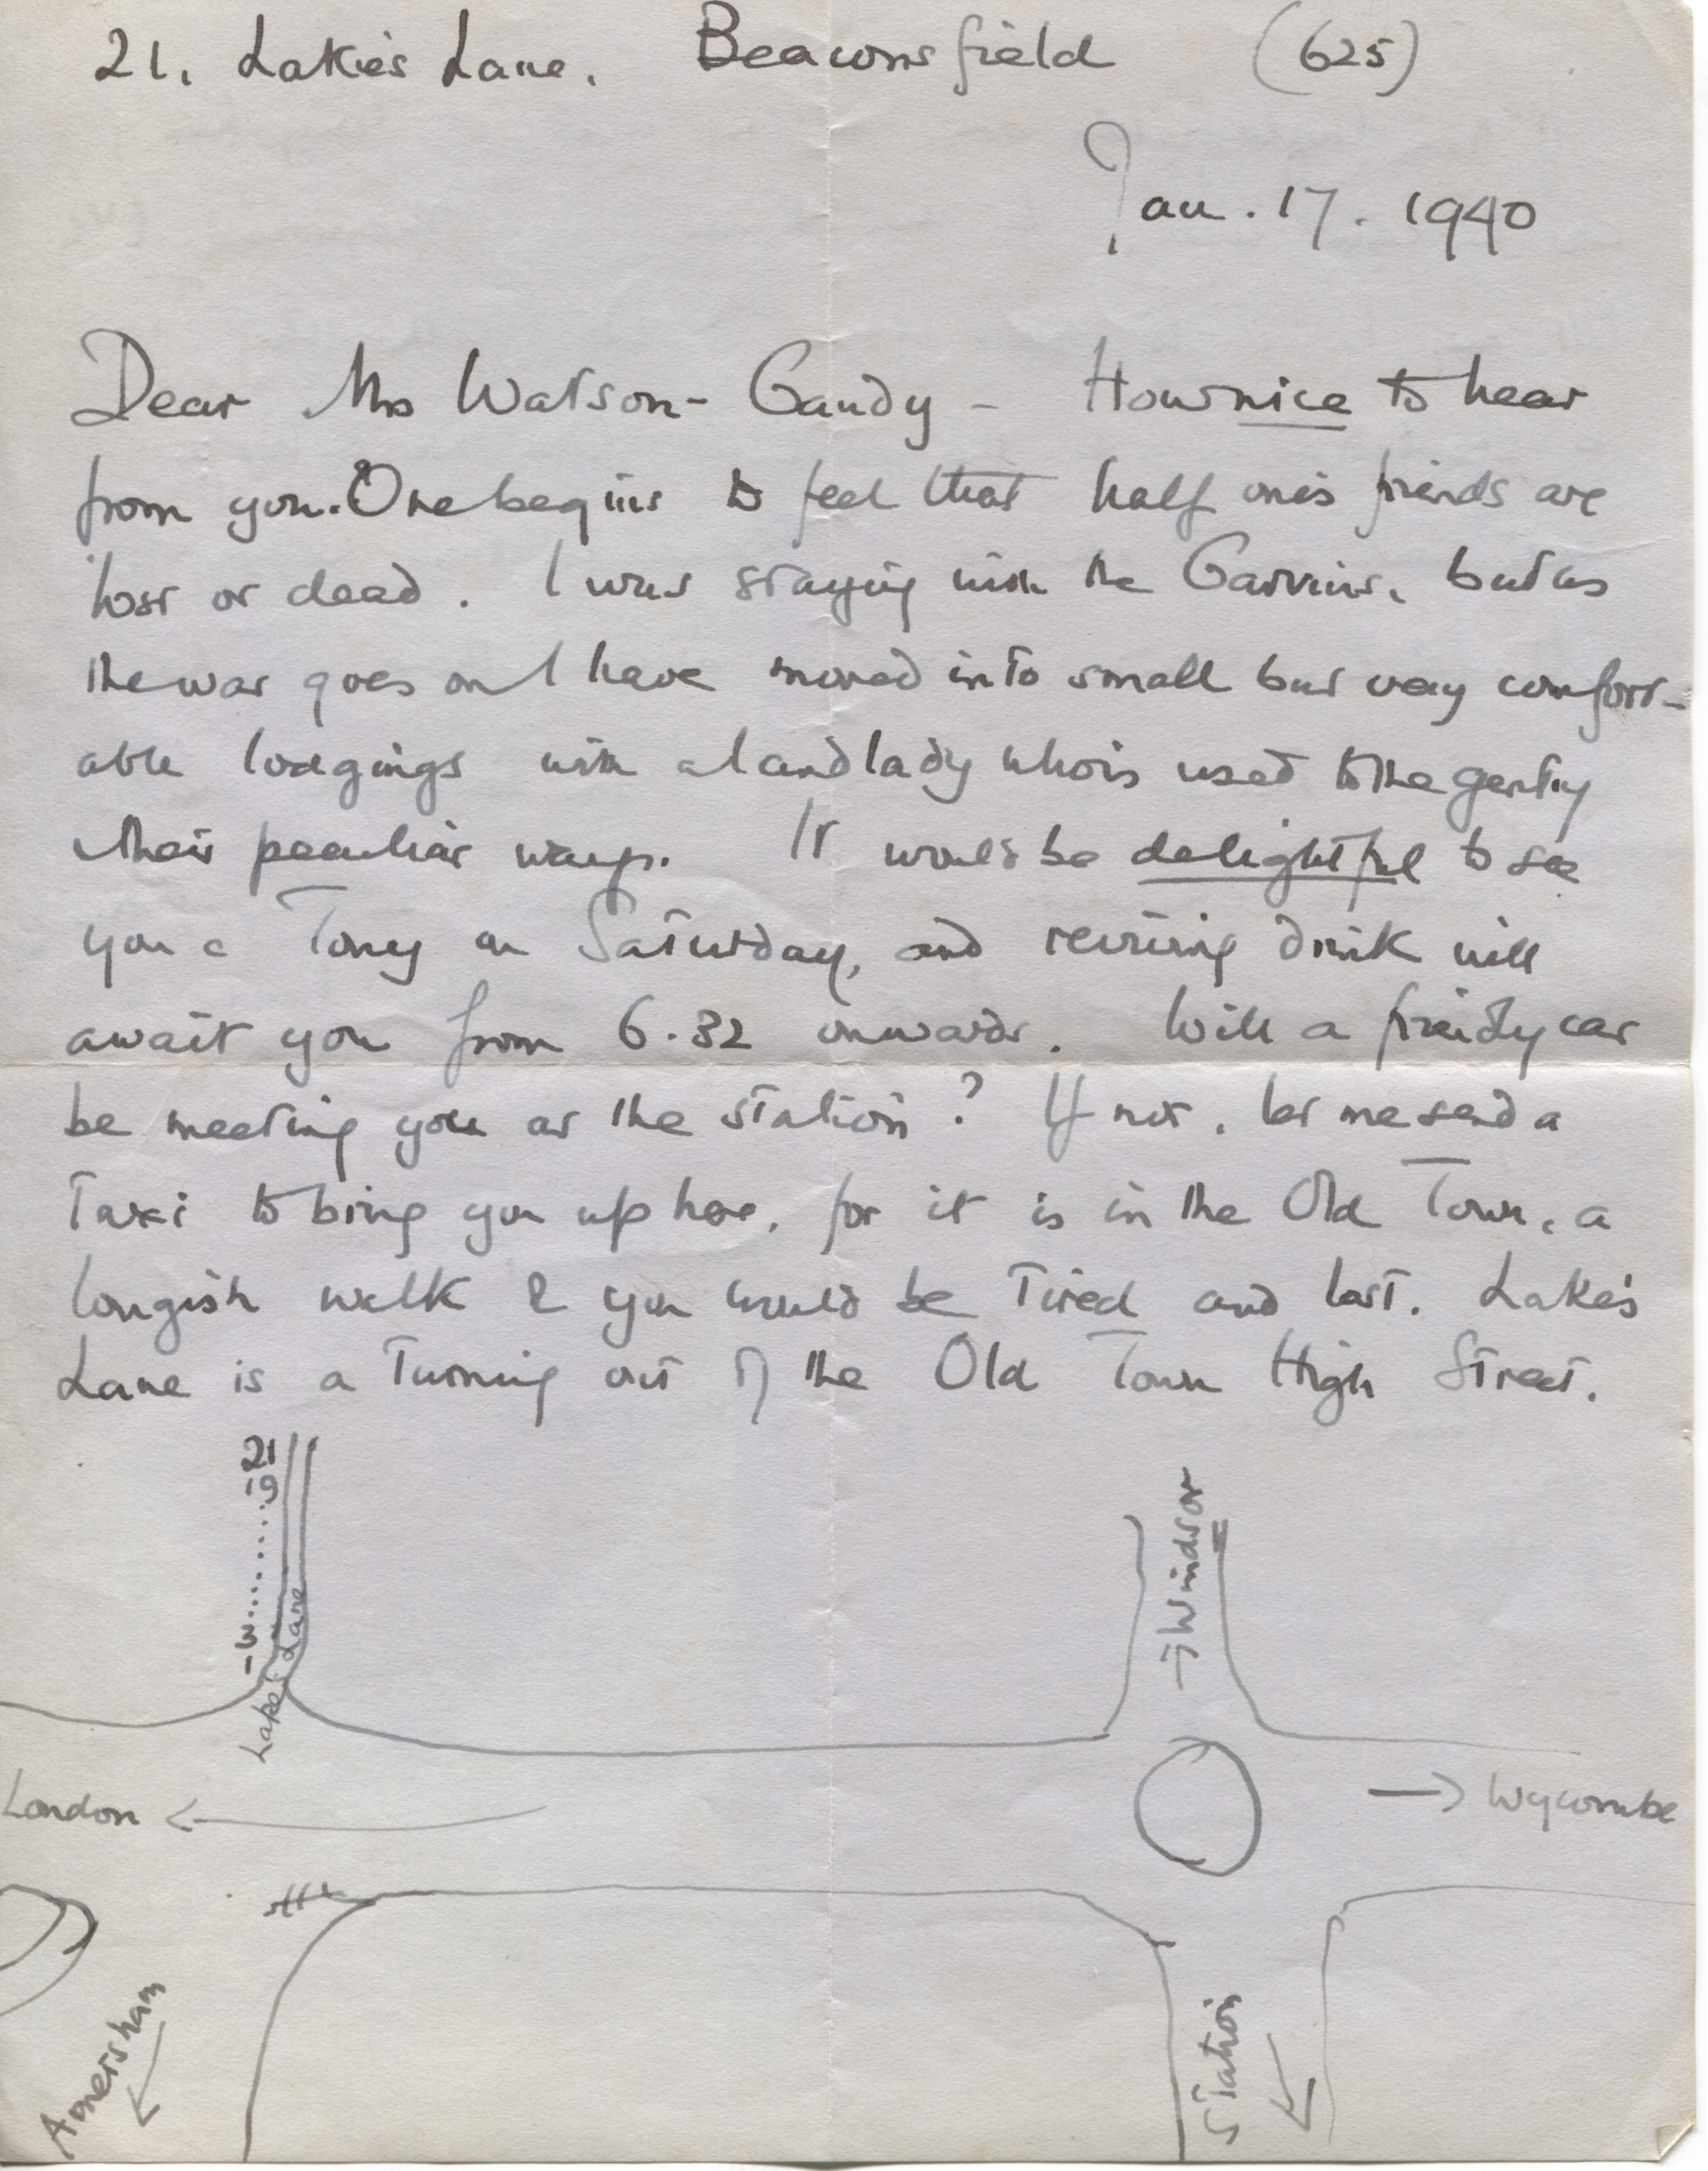 21. Lake's Lane. Beaconsfield (625)
Jan. 17. 1940
Dear Mrs Watson-Gandy - How nice to hear
from you. One begins to feel that half one's friends are
lost or dead. I was staying with the Garvins, but as
the war goes on I have moved into small but very comfort-
able lodgings with a landlady who is used to the gentry
& their peculiar ways. It would be delightful to see
you & Tony on Saturday, and reviving drink will
await you from 6.32 onwards. Will a friendly car
be meeting you at the station? If not, let me send a
Taxi to bring you up here, for it is in the Old Town, a
longish walk & you would be tired and lost. Lake's
Lane is a turning out of the Old Town High Street.
21
19
3
1
Lake's Lane
→ Windsor
London ←
→ Wycombe
Amersham
Station